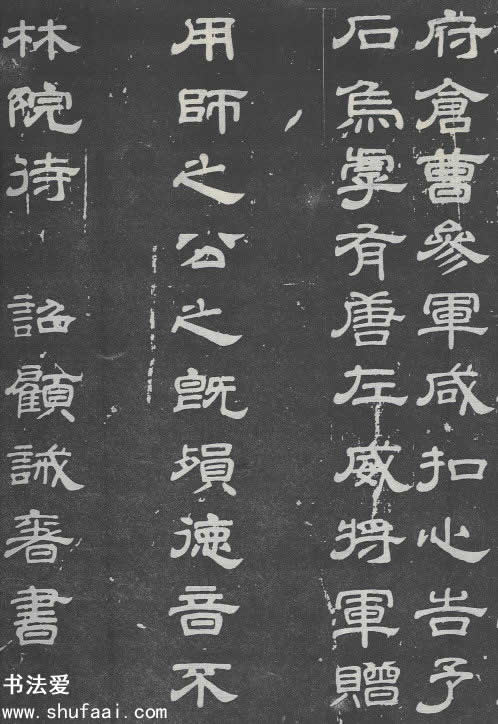 府倉曹參軍咸扣心告予
石烏虖有唐左威將軍贈
用師之公之既殞德音不
林院待 詔顧誡奢書
书法爱
www.shufaai.com